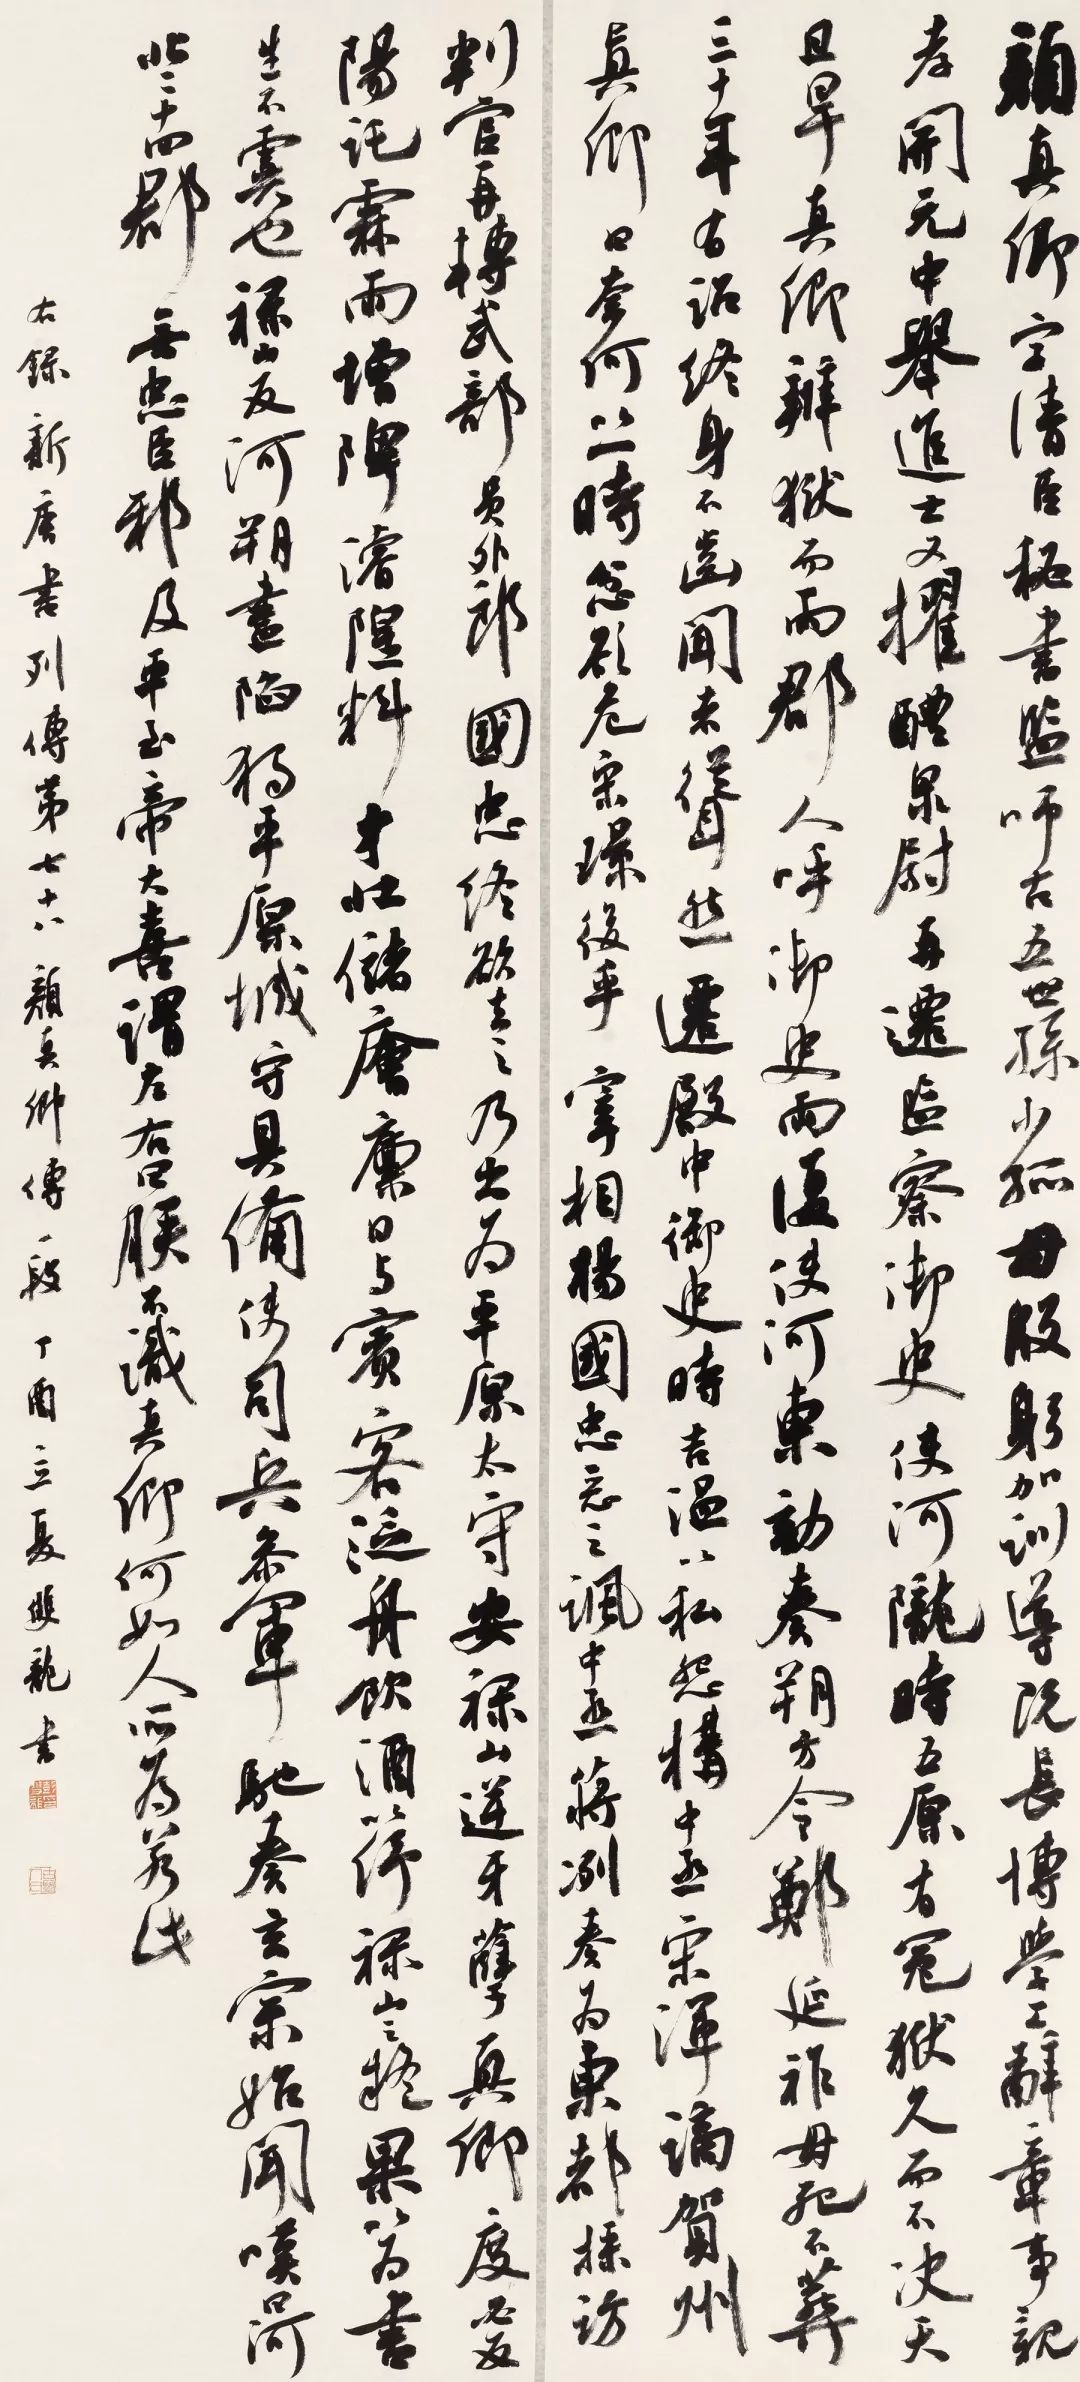 顏真卿字清臣秘書監師古五世孫少孤母殷躬加訓導既長博學工辭章事親
孝開元中舉進士又擢醴泉尉再遷監察御史使河隴時五原有冤獄久而不決天
且旱真卿辨獄而雨郡人呼御史雨復使河東劾奏朔方令鄭延祚母死不葬
三十年有詔終身不齒聞者聳然遷殿中御史時吉温以私怨構中丞宋渾謫賀州
真卿曰奈何以一時忿欲危宋璟後乎宰相楊國忠惡之諷中丞蔣冽奏為東都採訪
判官再轉武部員外郎國忠終欲去之乃出為平原太守安祿山逆牙孽真卿度必反
陽託霖雨增陴濬隍料才壯儲廥廩日與賓客泛舟飲酒以紓祿山之疑果以為書
生不虞也祿山反河朔盡陷獨平原城守具備使司兵參軍馳奏玄宗始聞嘆曰河
北二十四郡無忠臣邪及平至帝大喜謂左右曰朕不識真卿何如人所為若此
右錄新唐書列傳第七十八顏真卿傳一段丁酉立夏雙龍書